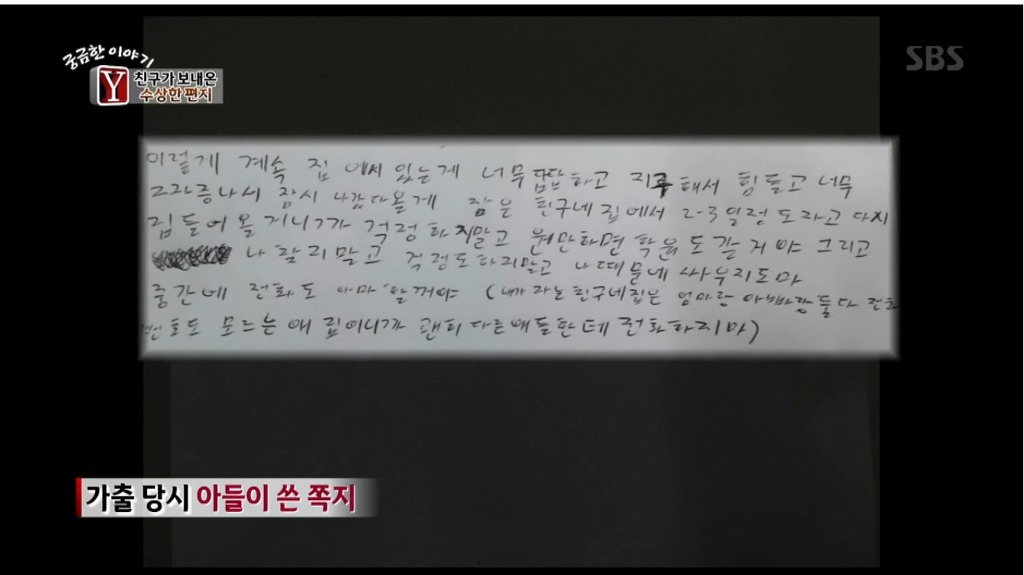 궁금한 이야기
Y
친구가 보내온
수상한 편지
SBS
이렇게 계속 집에서 있는게 너무 답답하고 지루해서 힘들고 너무
짜증나서 잠시 나갔다올게 잠은 친구네 집에서 2-3일정도자고 다시
집들어올거니까 걱정하지말고 웬만하면 학원도 갈거야 그리고
나 찾지말고 걱정도하지말고 나때문에 싸우지도마
중간에 전화도 아마 할꺼야 (내가 자는 친구네집은 엄마랑 아빠랑 둘다 전화
번호도 모르는 애 집이니까 괜히 다른애들한테 전화하지마)
가출 당시 아들이 쓴 쪽지